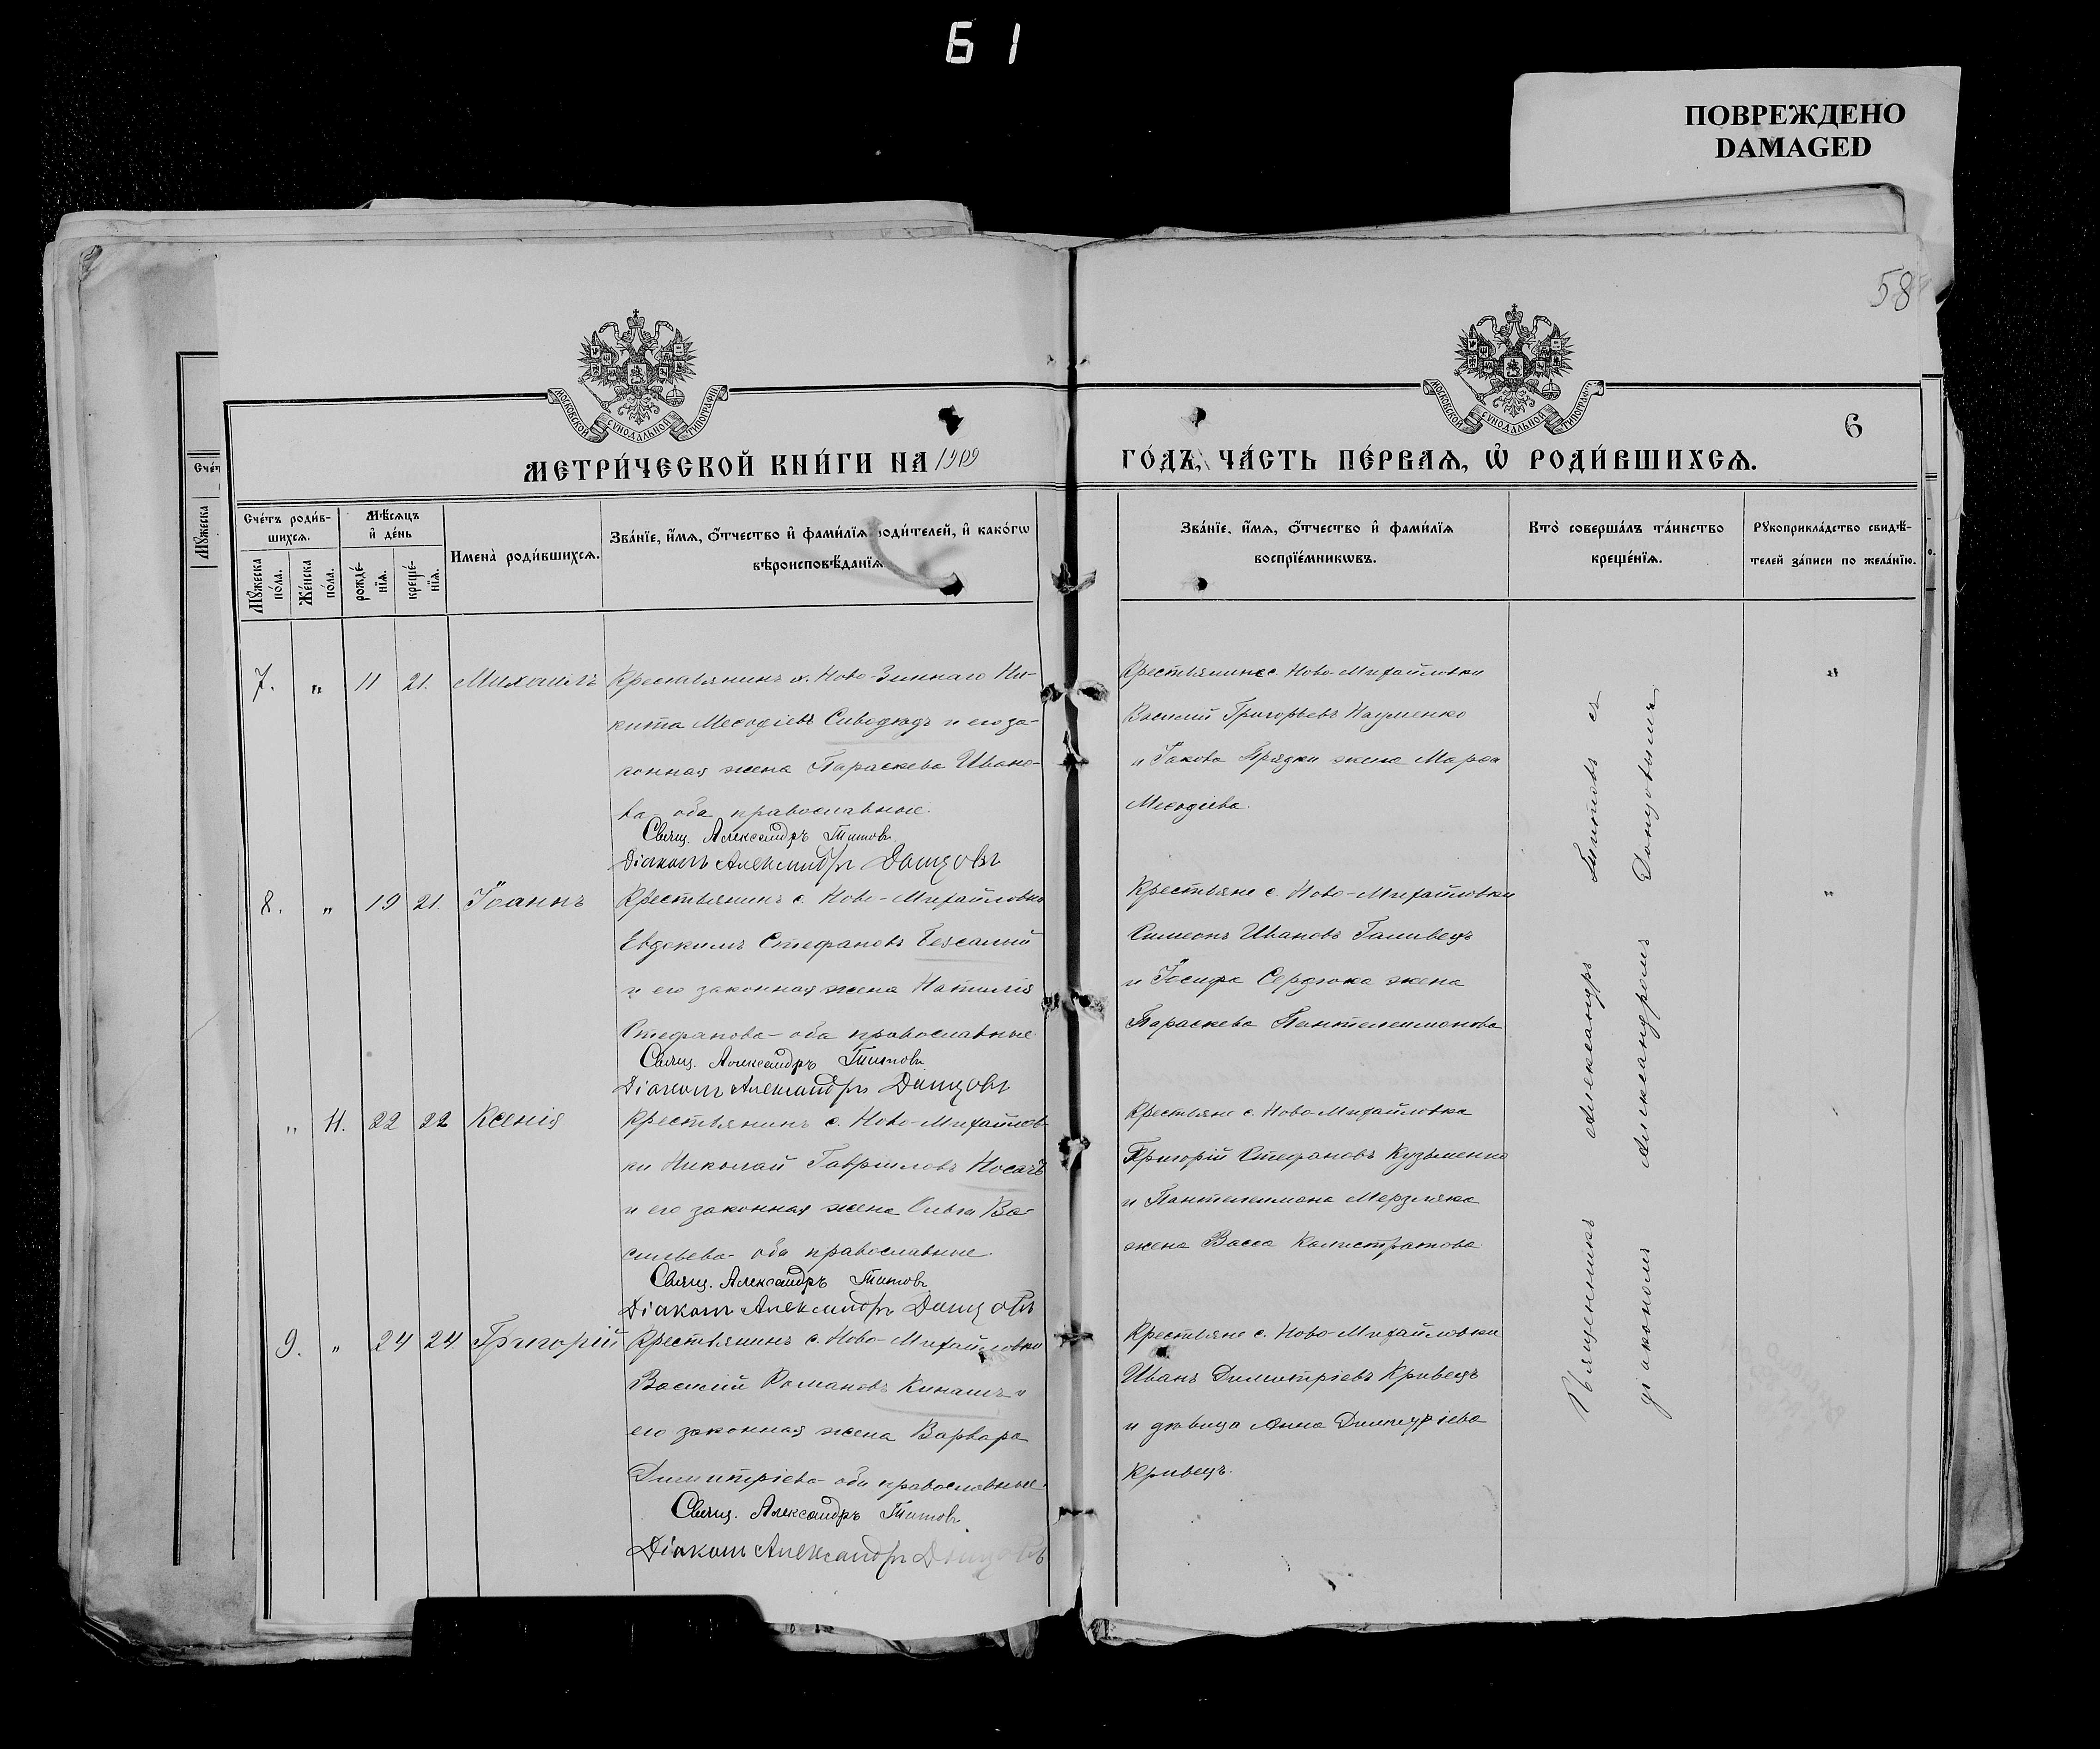 61
ПОВРЕЖДЕНО
DAMAGED
58
МОСКОВСКОЙ СѴНОДАЛЬНОЙ ТИПОГРАФІИ
МОСКОВСКОЙ СѴНОДАЛЬНОЙ ТИПОГРАФІИ
6
МЕТРИ́ЧЕСКОЙ КНИ́ГИ НА 1909
ГО́ДЪ, ЧА́СТЬ ПЕ́РВАЯ, Ѡ҆ РОДИ́ВШИХСЯ.
Сче́тъ роди́в-
шихся.
Мѣ́сяцъ
и҆ де́нь
Мꙋ́жеска
по́ла.
Же́нска
по́ла.
рожде́-
нїѧ.
креще́-
нїѧ.
Имена̀ роди́вшихся.
Зва́нїе, и҆́мѧ, о҆́тчество и҆ фами́лїѧ роди́телей, и҆ како́гѡ
вѣроисповѣ́данїѧ
Зва́нїе, и҆́мѧ, о҆́тчество и҆ фами́лїѧ
воспрїе́мникѡвъ.
Кто̀ соверша́лъ та́инство
креще́нїѧ.
Рꙋкоприкла́дство свидѣ́-
телей за́писи по жела́нїю.
Мꙋ́жеска
7. " 11 21. Михаилъ
Крестьянинъ х. Ново-Зиннаго Ни-
кита Меѳодіевъ Сиводедъ и его за-
конная жена Параскева Ивано-
ва оба православные.
Свящ. Александръ Титовъ
Діаконъ Александръ Донцовъ
Крестьянинъ с. Ново-Михайловки
Василій Григорьевъ Науменко
и Іакова Прядки жена Марѳа
Меѳодіева.
"
8. " 19 21. Іоаннъ
Крестьянинъ с. Ново-Михайловки
Евдокимъ Стефановъ
и его законная жена Наталія
Стефанова - оба православные
Свящ. Александръ Титовъ
Діаконъ Александръ Донцовъ
Крестьяне с. Ново-Михайловки
Симеонъ Ивановъ
и Іосифа Сердюка жена
Параскева Пантелеимонова
"
" 11. 22 22 Ксенія
Крестьянинъ с. Ново-Михайлов-
ки Николай Гавриловъ Носачъ
и его законная жена Ольга Ва-
сильева - оба православные.
Свящ. Александръ Титовъ
Діаконъ Александръ Донцовъ
Крестьяне с. Ново-Михайловка
Григорій Стефановъ Кузьменко
и Пантелеимона Мерзляка
жена Васса Калистратова.
9. " 24 24. Григорій
Крестьянинъ с. Ново-Михайловки
Василій Романовъ Кинашъ и
его законная жена Варвара
Димитріева - оба православные.
Свящ. Александръ Титовъ
Діаконъ Александръ Донцовъ
Крестьяне с. Ново-Михайловки
Иванъ Димитріевъ Кривецъ
и дѣвица Анна Димитріева
Кривецъ.
Священникъ Александръ Титовъ съ
діакономъ Александромъ Донцовымъ.